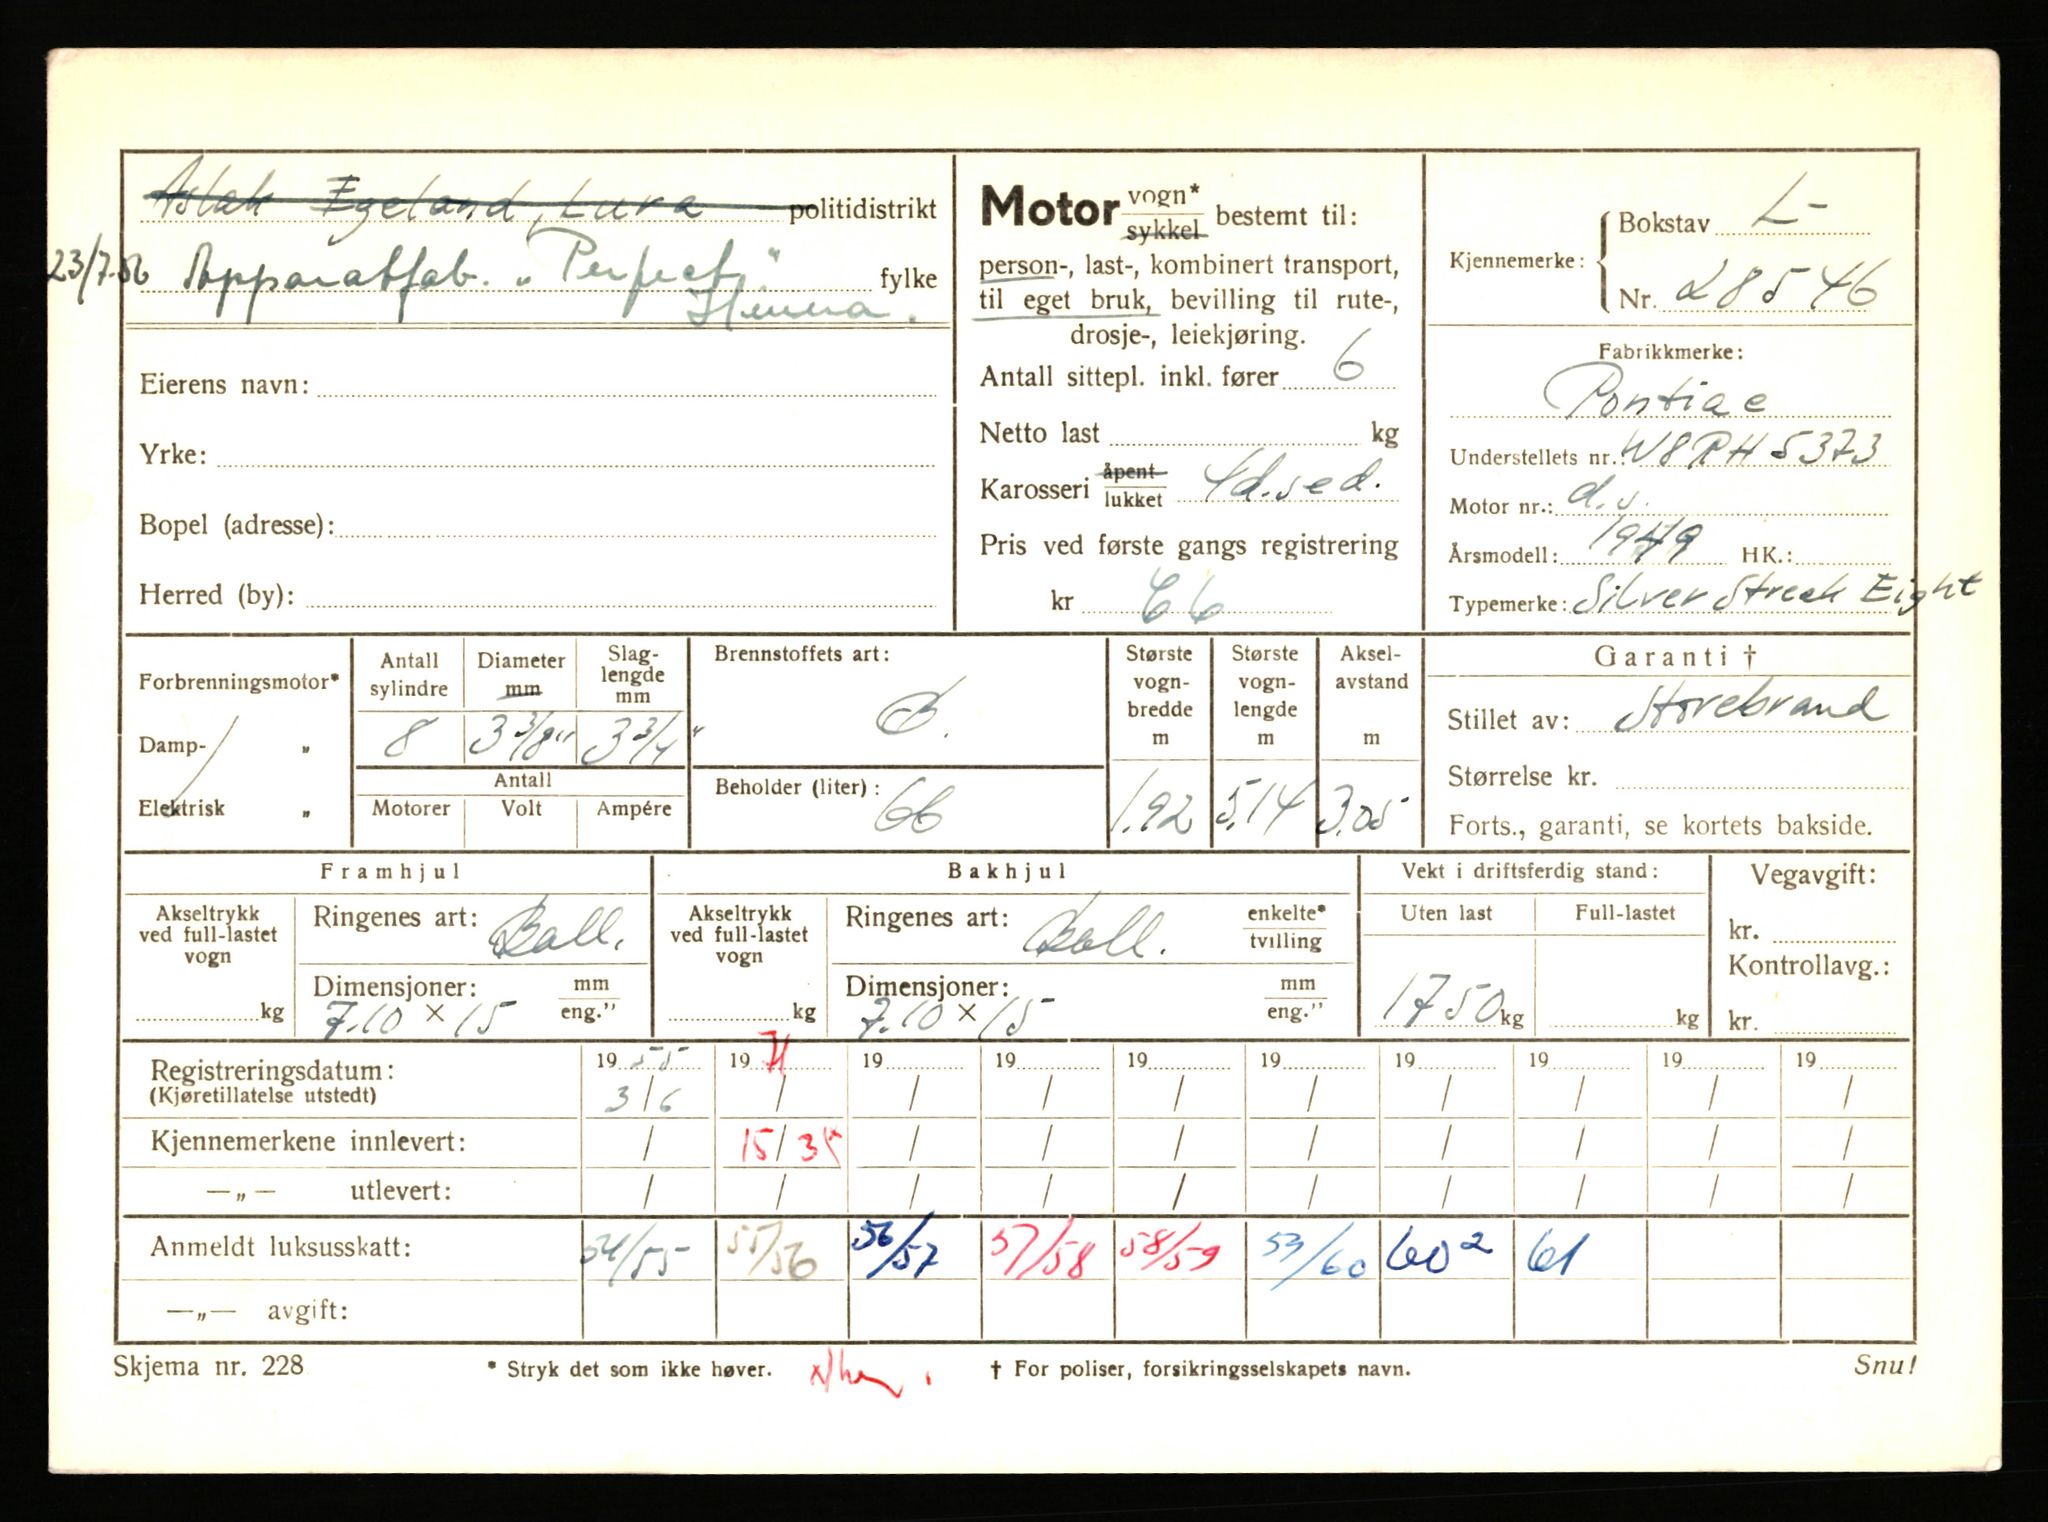 Aslak Egeland, Lura politidistrikt
23/7.56 Apparatfab. "Perfect" fylke
Hinna.
Eierens navn:
Yrke:
Bopel (adresse):
Herred (by):
Motor vogn*
sykkel bestemt til:
person-, last-, kombinert transport,
til eget bruk, bevilling til rute-,
drosje-, leiekjøring.
Antall sittepl. inkl. fører 6
Netto last kg
Karosseri åpent
lukket 4d.sed.
Pris ved første gangs registrering
kr
Kjennemerke: Bokstav L-
Nr. 28546
Fabrikkmerke:
Pontiac
Understellets nr.: W8RH5373
Motor nr.: d.s.
Årsmodell: 1949 HK.:
Typemerke: Silver Streak Eight
Forbrenningsmotor*
Damp- „
Elektrisk „
Antall sylindre 8
Diameter mm 3 3/8"
Slaglengde mm 3 3/4"
Antall
Motorer Volt Ampére
Brennstoffets art: B.
Beholder (liter): 66
Største vognbredde m 1.92
Største vognlengde m 5.14
Akselavstand m 3.05
Garanti †
Stillet av: Storebrand
Størrelse kr.
Forts., garanti, se kortets bakside.
Framhjul
Akseltrykk ved full-lastet vogn kg
Ringenes art: Ball.
Dimensjoner: mm
7.10 × 15 eng."
Bakhjul
Akseltrykk ved full-lastet vogn kg
Ringenes art: Ball. enkelte*
tvilling
Dimensjoner: mm
7.10 × 15 eng."
Vekt i driftsferdig stand:
Uten last Full-lastet
1750 kg kg
Vegavgift:
kr.
Kontrollavg.:
kr.
Registreringsdatum: 19 55 19 71 19 19 19 19 19 19 19 19
(Kjøretillatelse utstedt) 3/6 / / / / / / / / /
Kjennemerkene innlevert: / 15/3 / / / / / / / /
—„— utlevert: / / / / / / / / / /
Anmeldt luksusskatt: 54/55 55/56 56/57 57/58 58/59 59/60 60² 61
—„— avgift:
Skjema nr. 228 * Stryk det som ikke høver. † For poliser, forsikringsselskapets navn. Snu!